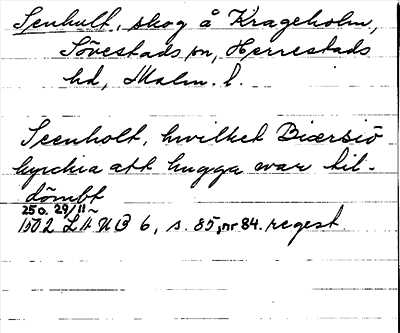 Senhult, skog å Krageholm,
Sövestads sn, Herrestads
hd, Malm. l.
Seenholt, hvilket Biærsiö
kyrchia att hugga war til-
dömbt
250. 29/11
1502 LAUB 6, s. 85, nr 84. regest